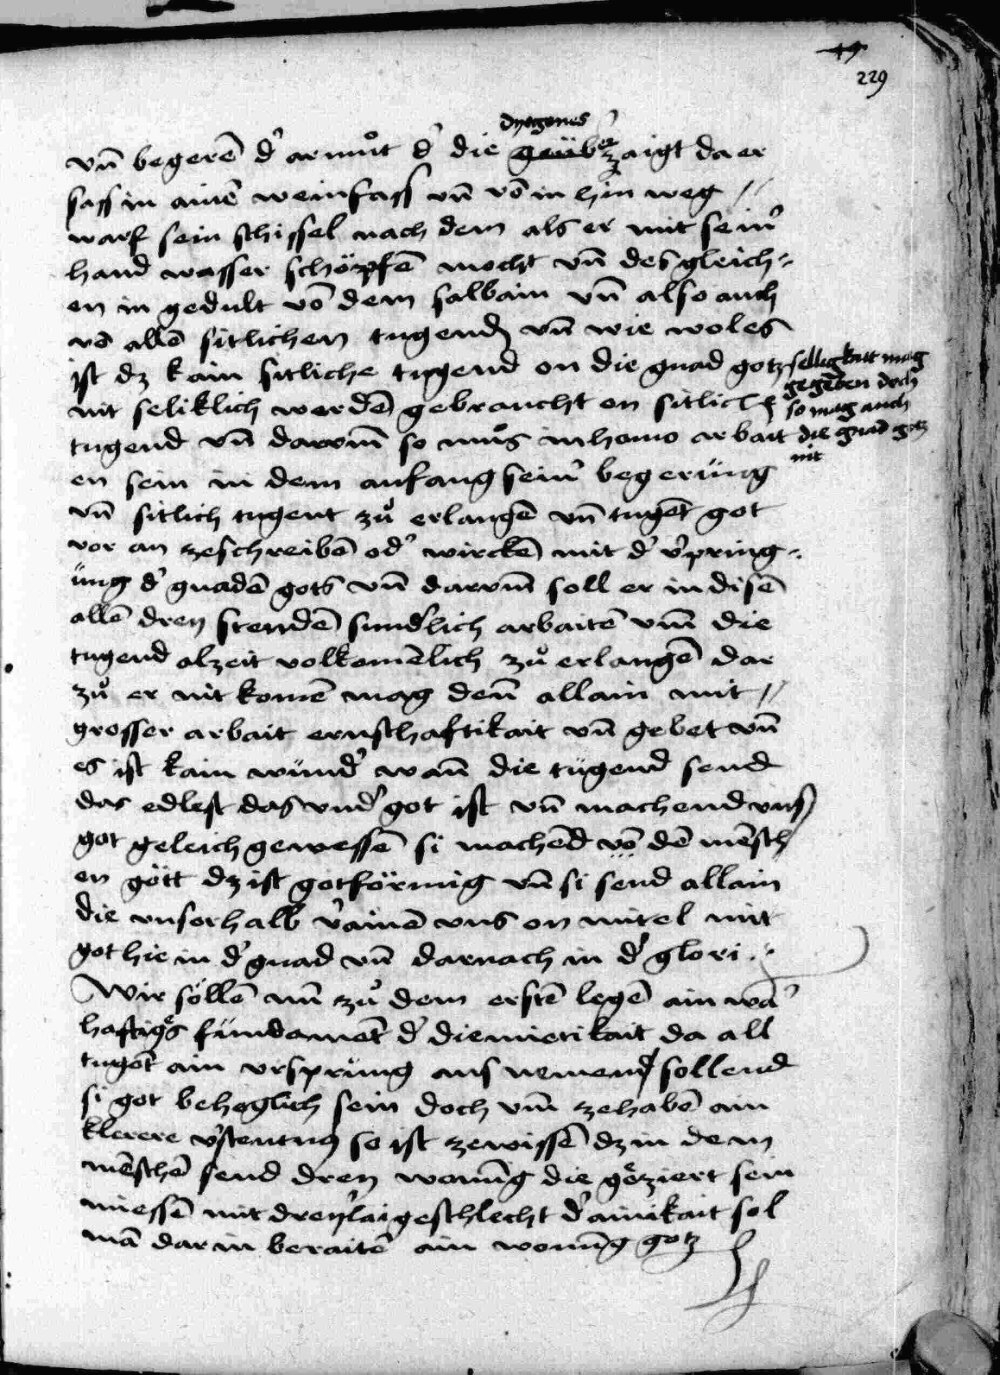 49
229
dyogenes
vn̄ begerē d' armůt d' die geüb' erzaigt da er
sass in ainē weinfass vn̄ vō in hin weg //
warf sein schissel nach dem als er mit sein'
hand wasser schöpfē mocht vn̄ des gleich-
en in gedult vō dem salbain vn̄ also auch
vō allē sitlichen tugend vn̄ wie wol es
ist dz kain sitliche tugend on die gnad gotz selligkait mag
gegeben doch
nit seliklich werdē gebraucht on sitlich
so mag auch
tugend vn̄ darvm̄ so můs in homo arbait die gnad gotz
nit
en sein in dem anfang sein' begerüng
vn̄ sitlich tugent zů erlangē vn̄ tugēt got
vor an zeschreibē od' wirckē mit d' v'pring-
üng d' gnadē gots vn̄ darvm̄ soll er in disē
allē dreÿ stendē sund'lich arbaitē vm̄ die
tugend alzeit volkomēlich zů erlangē dar
zů er nit komē mag denn allain mit //
grosser arbait ernsthaftikait vn̄ gebet vn̄
es ist kain wund' wan̄ die tugend send
das edlest das vnd' got ist vn̄ machend vns
got geleich gewessē si machēd vō dē mēsch
en gött dz ist gotförmig vn̄ si send allain
die vnserhalb v'ainē vns on mitel mit
got hie in d' gnad vn̄ darnach in d' glori
Wir söllē nu zů dem erstē legē ain wa'
haftigs fundamēt d' diemietikait da all
tugēt ain vrsprüng aus nemend sollend
si got beheglich sein doch vm̄ zehabē ain
klerere v'stentnus so ist zewissē dz in dem
mēschē send dreÿ wonūg die geziert sein
miessē mit dreÿ'lai geschlecht d' ainikait sol
mā dar in beraitē ain wonūg gotz